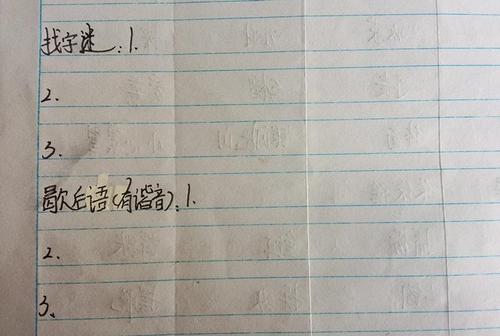 找字迷：1.
2.
3.
歇后语（有谐音）：1.
2.
3、